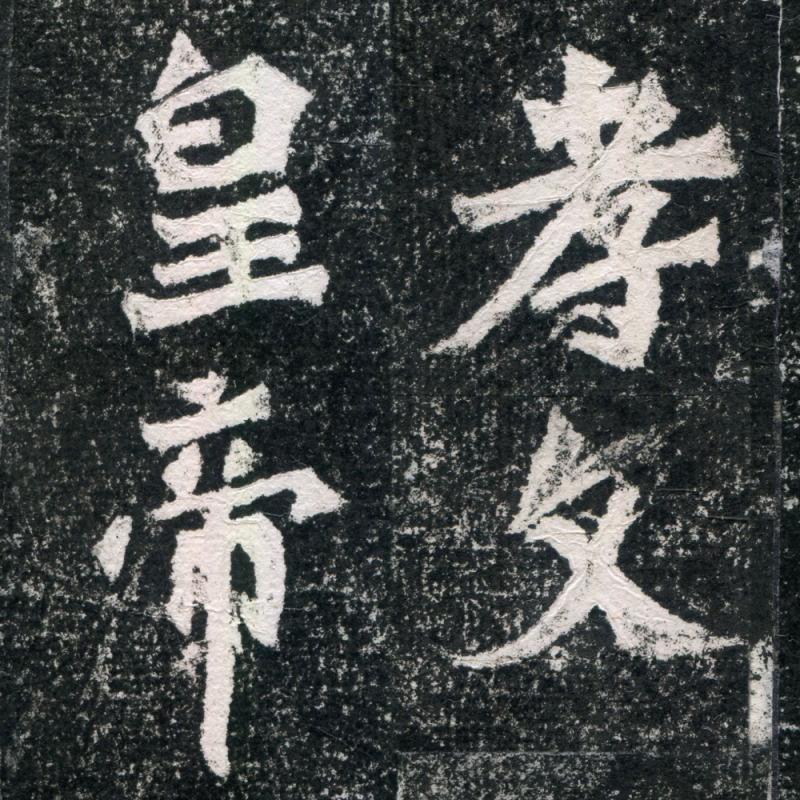 孝文
皇帝